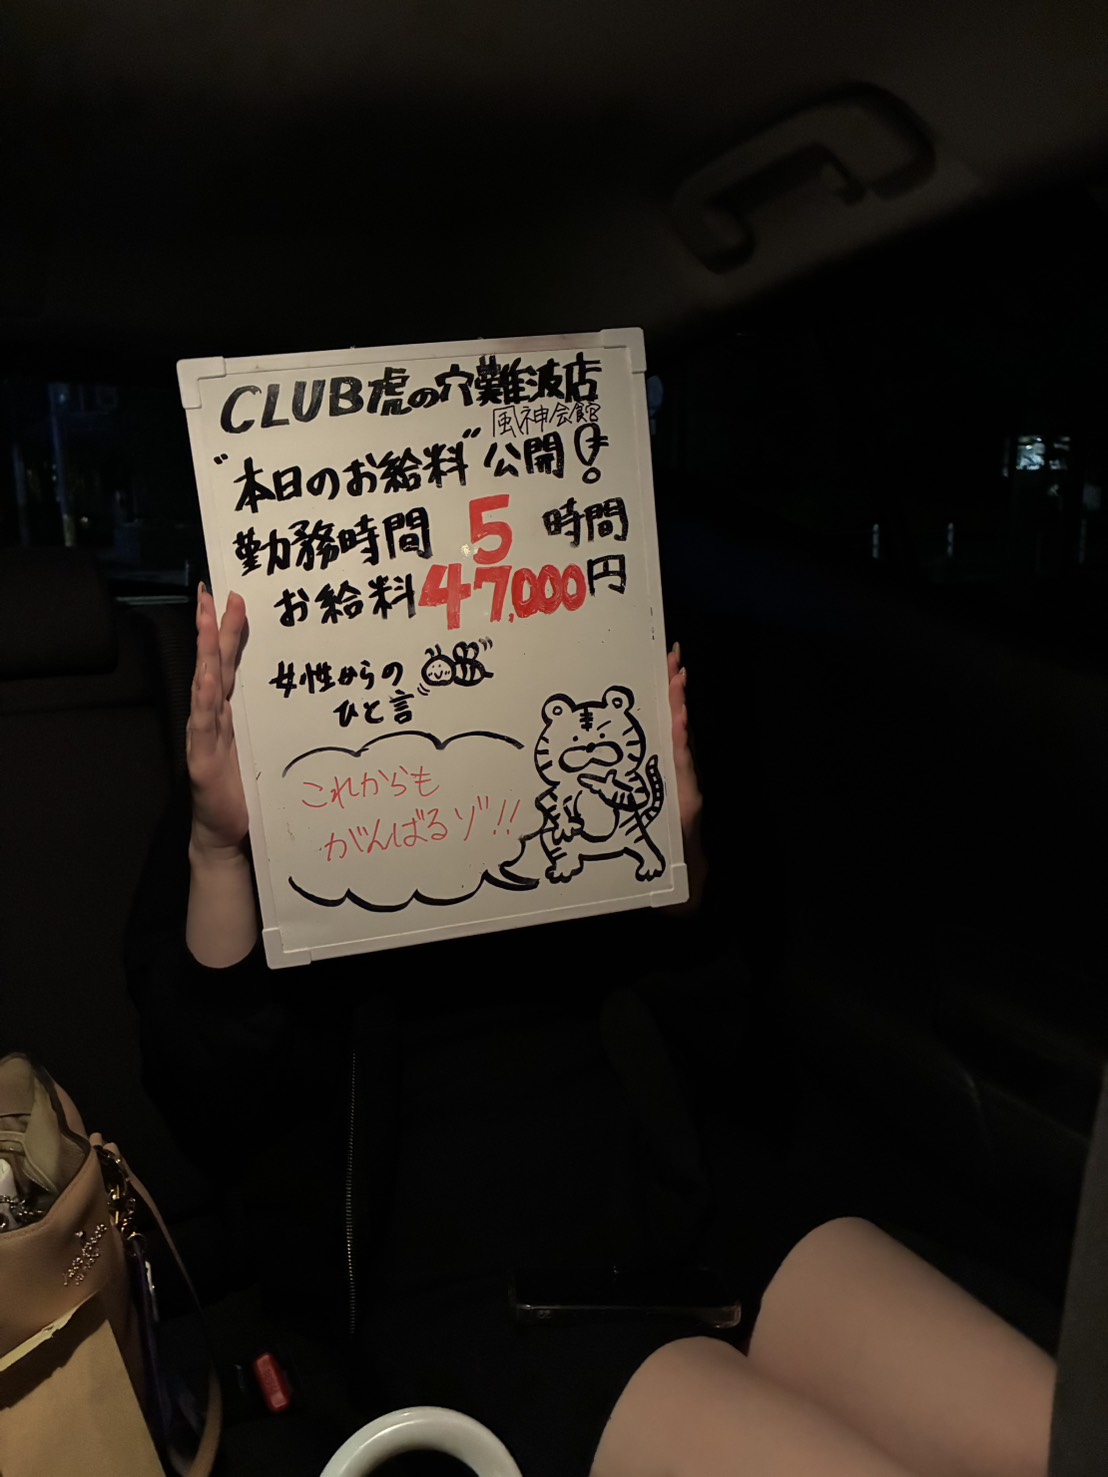 CLUB虎の穴難波店
風神会館
"本日のお給料"公開!
勤務時間 5 時間
お給料47,000円
女性からの
ひと言
これからも
がんばるゾ!!